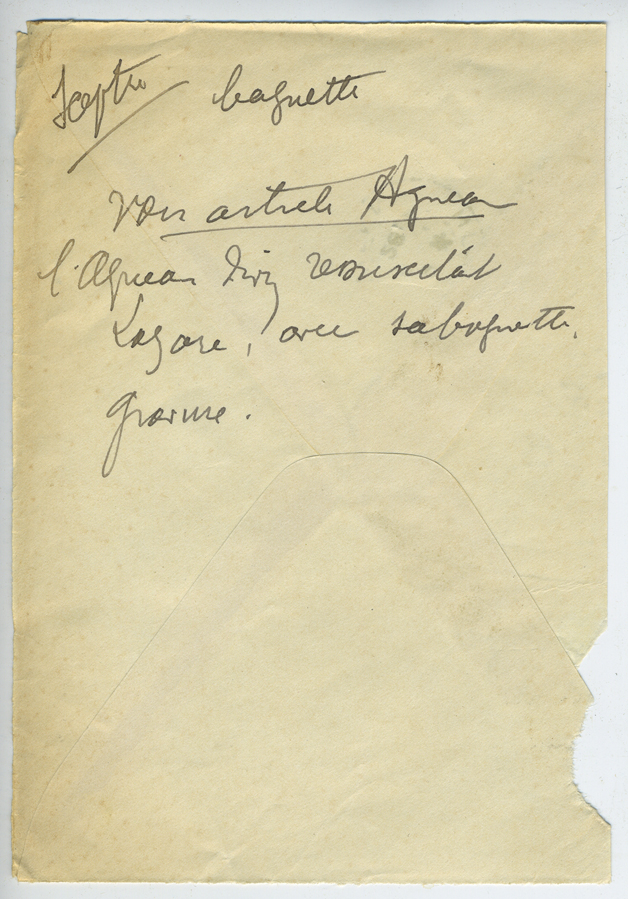 Sceptre baguette
Voir article Agneau
l'Agneau Divin ressuscitant
Lazare, avec sa baguette.
gravure.